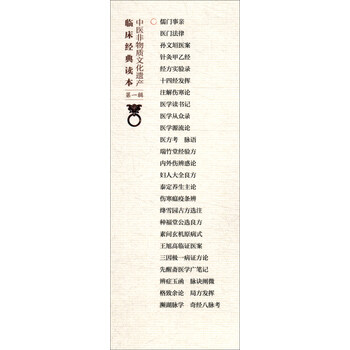 中医非物质文化遗产
临床经典读本
第一辑
儒门事亲
医门法律
孙文垣医案
针灸甲乙经
经方实验录
十四经发挥
注解伤寒论
医学读书记
医学从众录
医学源流论
医方考 脉语
瑞竹堂经验方
内外伤辨惑论
妇人大全良方
泰定养生主论
伤寒瘟疫条辨
绛雪园古方选注
种福堂公选良方
素问玄机原病式
王旭高临证医案
三因极一病证方论
先醒斋医学广笔记
辨症玉函 脉诀阐微
格致余论 局方发挥
濒湖脉学 奇经八脉考